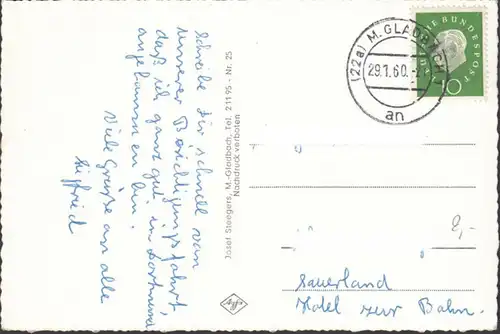 Schreibe dir schnell von
unserer Besichtigungsfahrt,
daß ich ganz gut in Dortmund
angekommen bin.
Viele Grüße an alle
Siegfried
Josef Stoegers, M.-Gladbach, Tel. 21195 - Nr. 25
Nachdruck verboten
(22a) M. GLADBACH
29.1.60.-
an
DEUTSCHE BUNDESPOST
10
2,-
Sauerland
Hotel zur Bahn.